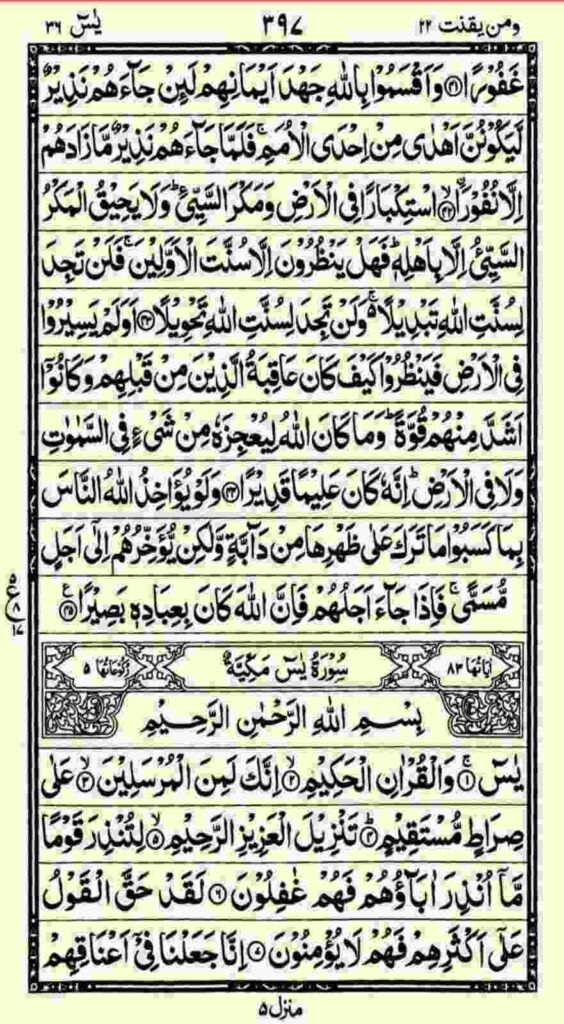 ومن يقنت ٢٢ ٣٩٧ يٰسٓ ٣٦
غَفُوْرًا ﴿۴۱﴾ وَاَقْسَمُوْا بِاللّٰهِ جَهْدَ اَيْمَانِهِمْ لَئِنْ جَآءَهُمْ نَذِيْرٌ
لَّيَكُوْنُنَّ اَهْدٰى مِنْ اِحْدَى الْاُمَمِ ۚ فَلَمَّا جَآءَهُمْ نَذِيْرٌ مَّا زَادَهُمْ
اِلَّا نُفُوْرًا ﴿۴۲﴾ اسْتِكْبَارًا فِى الْاَرْضِ وَمَكْرَ السَّيِّئِ ؕ وَلَا يَحِيْقُ الْمَكْرُ
السَّيِّئُ اِلَّا بِاَهْلِهٖ ؕ فَهَلْ يَنْظُرُوْنَ اِلَّا سُنَّتَ الْاَوَّلِيْنَ ۚ فَلَنْ تَجِدَ
لِسُنَّتِ اللّٰهِ تَبْدِيْلًا ۚ۬ وَلَنْ تَجِدَ لِسُنَّتِ اللّٰهِ تَحْوِيْلًا ﴿۴۳﴾ اَوَلَمْ يَسِيْرُوْا
فِى الْاَرْضِ فَيَنْظُرُوْا كَيْفَ كَانَ عَاقِبَةُ الَّذِيْنَ مِنْ قَبْلِهِمْ وَكَانُوْۤا
اَشَدَّ مِنْهُمْ قُوَّةً ؕ وَمَا كَانَ اللّٰهُ لِيُعْجِزَهٗ مِنْ شَىْءٍ فِى السَّمٰوٰتِ
وَلَا فِى الْاَرْضِ ؕ اِنَّهٗ كَانَ عَلِيْمًا قَدِيْرًا ﴿۴۴﴾ وَلَوْ يُؤَاخِذُ اللّٰهُ النَّاسَ
بِمَا كَسَبُوْا مَا تَرَكَ عَلٰى ظَهْرِهَا مِنْ دَآبَّةٍ وَّلٰكِنْ يُّؤَخِّرُهُمْ اِلٰٓى اَجَلٍ
مُّسَمًّى ۚ فَاِذَا جَآءَ اَجَلُهُمْ فَاِنَّ اللّٰهَ كَانَ بِعِبَادِهٖ بَصِيْرًا ﴿۴۵﴾
اٰيَاتُهَا ٨٣ سُوْرَةُ يٰسٓ مَكِّيَّةٌ رُكُوْعَاتُهَا ٥
بِسْمِ اللّٰهِ الرَّحْمٰنِ الرَّحِيْمِ
يٰسٓ ﴿۱﴾ وَالْقُرْاٰنِ الْحَكِيْمِ ﴿۲﴾ اِنَّكَ لَمِنَ الْمُرْسَلِيْنَ ﴿۳﴾ عَلٰى
صِرَاطٍ مُّسْتَقِيْمٍ ﴿۴﴾ تَنْزِيْلَ الْعَزِيْزِ الرَّحِيْمِ ﴿۵﴾ لِتُنْذِرَ قَوْمًا
مَّاۤ اُنْذِرَ اٰبَآؤُهُمْ فَهُمْ غٰفِلُوْنَ ﴿۶﴾ لَقَدْ حَقَّ الْقَوْلُ
عَلٰٓى اَكْثَرِهِمْ فَهُمْ لَا يُؤْمِنُوْنَ ﴿۷﴾ اِنَّا جَعَلْنَا فِىْۤ اَعْنَاقِهِمْ
منزل ٥